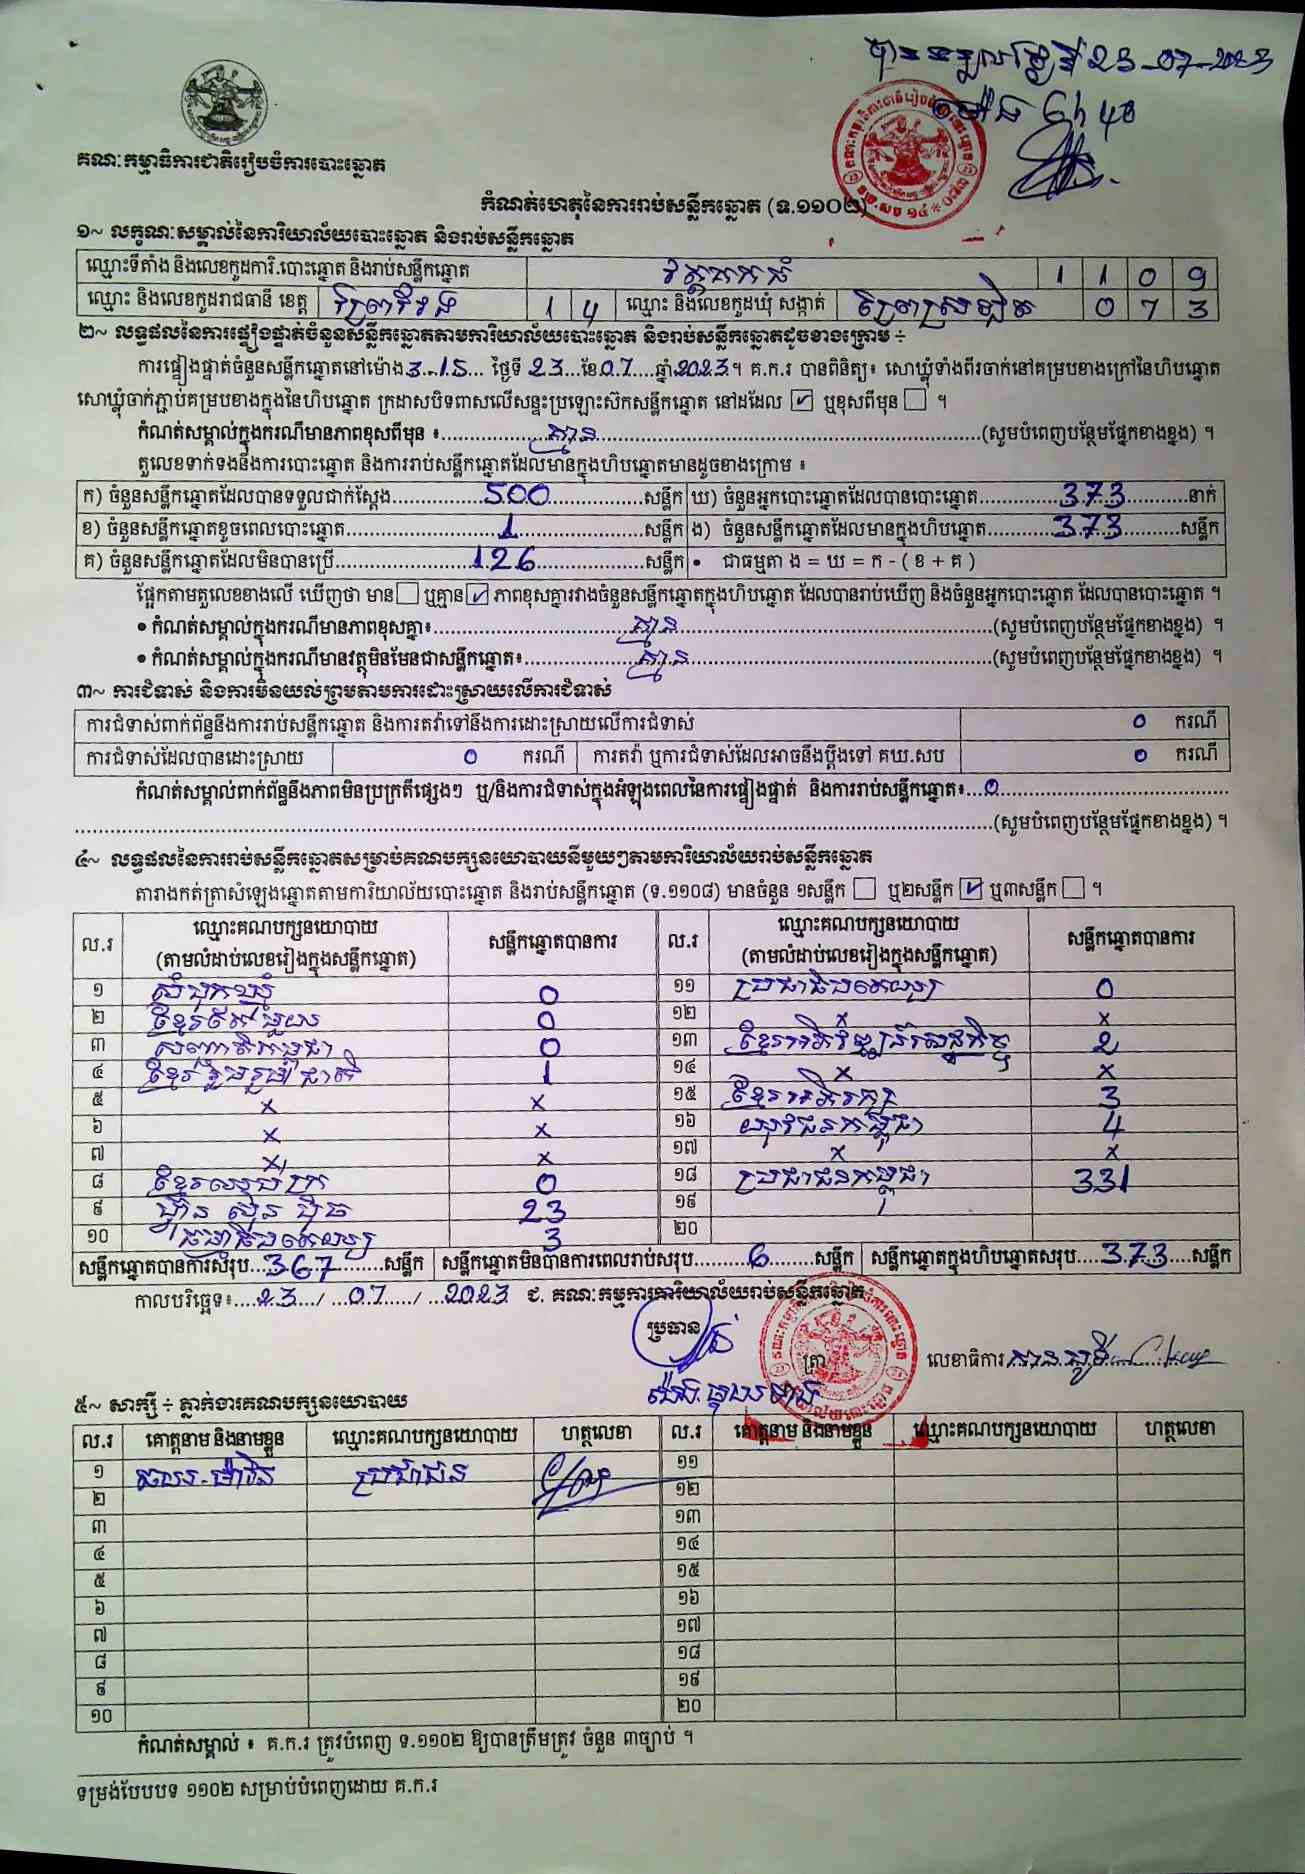 បានទទួលថ្ងៃទី 23-07-2023
ម៉ោង
គណៈកម្មាធិការជាតិរៀបចំការបោះឆ្នោត
កំណត់ហេតុនៃការរាប់សន្លឹកឆ្នោត (ទ.១១០២)
១~ លក្ខណៈសម្គាល់នៃការិយាល័យបោះឆ្នោត និងរាប់សន្លឹកឆ្នោត
ឈ្មោះទីតាំង និងលេខកូដការិ.បោះឆ្នោត និងរាប់សន្លឹកឆ្នោត 1 1 0 9
ឈ្មោះ និងលេខកូដរាជធានី ខេត្ត ព្រៃវែង 1 4 ឈ្មោះ និងលេខកូដឃុំ សង្កាត់ 0 7 3
២~ លទ្ធផលនៃការផ្ទៀងផ្ទាត់ចំនួនសន្លឹកឆ្នោតតាមការិយាល័យបោះឆ្នោត និងរាប់សន្លឹកឆ្នោតដូចខាងក្រោម ÷
ការផ្ទៀងផ្ទាត់ចំនួនសន្លឹកឆ្នោតនៅម៉ោង 3-15 ថ្ងៃទី 23 ខែ 07 ឆ្នាំ 2023។ គ.ក.រ បានពិនិត្យ៖ សោឃ្លុំទាំងពីរចាក់នៅគម្របខាងក្រៅនៃហិបឆ្នោត
សោឃ្លុំចាក់ភ្ជាប់គម្របខាងក្នុងនៃហិបឆ្នោត ក្រដាសបិទពាសលើសន្ទះប្រឡោះស៊កសន្លឹកឆ្នោត នៅដដែល ☑ ឬខុសពីមុន ☐ ។
កំណត់សម្គាល់ក្នុងករណីមានភាពខុសពីមុន ៖ គ្មាន (សូមបំពេញបន្ថែមផ្នែកខាងខ្នង) ។
តួលេខទាក់ទងនឹងការបោះឆ្នោត និងការរាប់សន្លឹកឆ្នោតដែលមានក្នុងហិបឆ្នោតមានដូចខាងក្រោម ៖
ក) ចំនួនសន្លឹកឆ្នោតដែលបានទទួលជាក់ស្តែង 500 សន្លឹក ឃ) ចំនួនអ្នកបោះឆ្នោតដែលបានបោះឆ្នោត 373 នាក់
ខ) ចំនួនសន្លឹកឆ្នោតខូចពេលបោះឆ្នោត 1 សន្លឹក ង) ចំនួនសន្លឹកឆ្នោតដែលមានក្នុងហិបឆ្នោត 373 សន្លឹក
គ) ចំនួនសន្លឹកឆ្នោតដែលមិនបានប្រើ 126 សន្លឹក • ជាធម្មតា ង = ឃ = ក - ( ខ + គ )
ផ្អែកតាមតួលេខខាងលើ ឃើញថា មាន ☐ ឬគ្មាន ☑ ភាពខុសគ្នារវាងចំនួនសន្លឹកឆ្នោតក្នុងហិបឆ្នោត ដែលបានរាប់ឃើញ និងចំនួនអ្នកបោះឆ្នោត ដែលបានបោះឆ្នោត ។
• កំណត់សម្គាល់ក្នុងករណីមានភាពខុសគ្នា៖ គ្មាន (សូមបំពេញបន្ថែមផ្នែកខាងខ្នង) ។
• កំណត់សម្គាល់ក្នុងករណីមានវត្ថុមិនមែនជាសន្លឹកឆ្នោត៖ គ្មាន (សូមបំពេញបន្ថែមផ្នែកខាងខ្នង) ។
៣~ ការជំទាស់ និងការមិនយល់ព្រមតាមការដោះស្រាយលើការជំទាស់
ការជំទាស់ពាក់ព័ន្ធនឹងការរាប់សន្លឹកឆ្នោត និងការតវ៉ាទៅនឹងការដោះស្រាយលើការជំទាស់ 0 ករណី
ការជំទាស់ដែលបានដោះស្រាយ 0 ករណី ការតវ៉ា ឬការជំទាស់ដែលអាចនឹងប្តឹងទៅ គឃ.សប 0 ករណី
កំណត់សម្គាល់ពាក់ព័ន្ធនឹងភាពមិនប្រក្រតីផ្សេងៗ ឬ/និងការជំទាស់ក្នុងអំឡុងពេលនៃការផ្ទៀងផ្ទាត់ និងការរាប់សន្លឹកឆ្នោត៖ 0
(សូមបំពេញបន្ថែមផ្នែកខាងខ្នង) ។
៤~ លទ្ធផលនៃការរាប់សន្លឹកឆ្នោតសម្រាប់គណបក្សនយោបាយនីមួយៗតាមការិយាល័យរាប់សន្លឹកឆ្នោត
តារាងកត់ត្រាសំឡេងឆ្នោតតាមការិយាល័យបោះឆ្នោត និងរាប់សន្លឹកឆ្នោត (ទ.១១០៨) មានចំនួន ១សន្លឹក ☐ ឬ២សន្លឹក ☑ ឬ៣សន្លឹក ☐ ។
ល.រ ឈ្មោះគណបក្សនយោបាយ (តាមលំដាប់លេខរៀងក្នុងសន្លឹកឆ្នោត) សន្លឹកឆ្នោតបានការ ល.រ ឈ្មោះគណបក្សនយោបាយ (តាមលំដាប់លេខរៀងក្នុងសន្លឹកឆ្នោត) សន្លឹកឆ្នោតបានការ
១ សំបុកឃ្មុំ 0 ១១ ប្រជាធិបតេយ្យ 0
២ ខ្មែរតែមួយ 0 ១២ x x
៣ សញ្ជាតិកម្ពុជា 0 ១៣ ខ្មែរអភិវឌ្ឍន៍សេដ្ឋកិច្ច 2
៤ ខ្មែររួបរួមជាតិ 1 ១៤ x x
៥ x x ១៥ ខ្មែរអភិរក្ស 3
៦ x x ១៦ យុវជនកម្ពុជា 4
៧ x x ១៧ x x
៨ 0 ១៨ ប្រជាជនកម្ពុជា 331
៩ ហ៊្វុនស៊ិនប៉ិច 23 ១៩
១០ 3 ២០
សន្លឹកឆ្នោតបានការសរុប 367 សន្លឹក សន្លឹកឆ្នោតមិនបានការពេលរាប់សរុប 6 សន្លឹក សន្លឹកឆ្នោតក្នុងហិបឆ្នោតសរុប 373 សន្លឹក
កាលបរិច្ឆេទ៖ 23 / 07 / 2023 ជ. គណៈកម្មការការិយាល័យរាប់សន្លឹកឆ្នោត
ប្រធាន ត្រា លេខាធិការ
៥~ សាក្សី ÷ ភ្នាក់ងារគណបក្សនយោបាយ
ល.រ គោត្តនាម និងនាមខ្លួន ឈ្មោះគណបក្សនយោបាយ ហត្ថលេខា ល.រ គោត្តនាម និងនាមខ្លួន ឈ្មោះគណបក្សនយោបាយ ហត្ថលេខា
១ ប្រជាជន ១១
២ ១២
៣ ១៣
៤ ១៤
៥ ១៥
៦ ១៦
៧ ១៧
៨ ១៨
៩ ១៩
១០ ២០
កំណត់សម្គាល់ ៖ គ.ក.រ ត្រូវបំពេញ ទ.១១០២ ឱ្យបានត្រឹមត្រូវ ចំនួន ៣ច្បាប់ ។
ទម្រង់បែបបទ ១១០២ សម្រាប់បំពេញដោយ គ.ក.រ